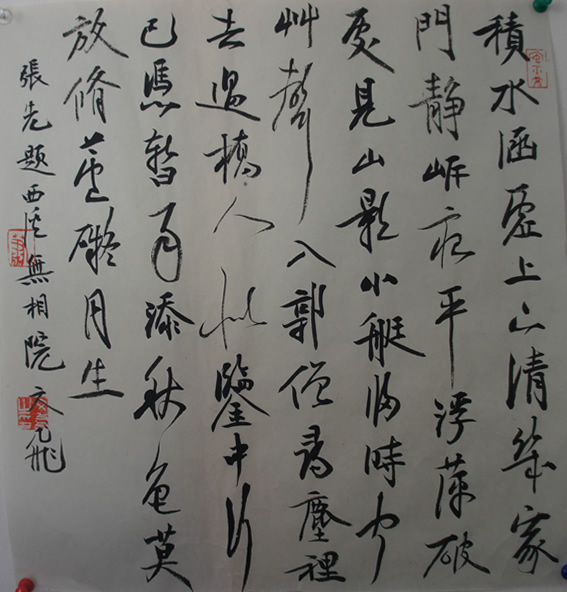 積水涵虛上下清幾家
門靜岸痕平浮萍破
處見山影小艇歸時聞
艸聲入郭僧尋塵裡
去過橋人似鑒中行
已馮暫雨添秋色莫
放脩蘆礙月生
張先題西溪無相院